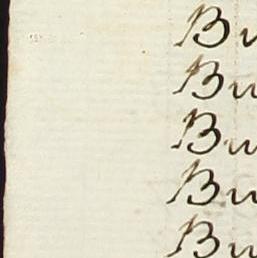 Bu
Bu
Bu
Bu
Bu